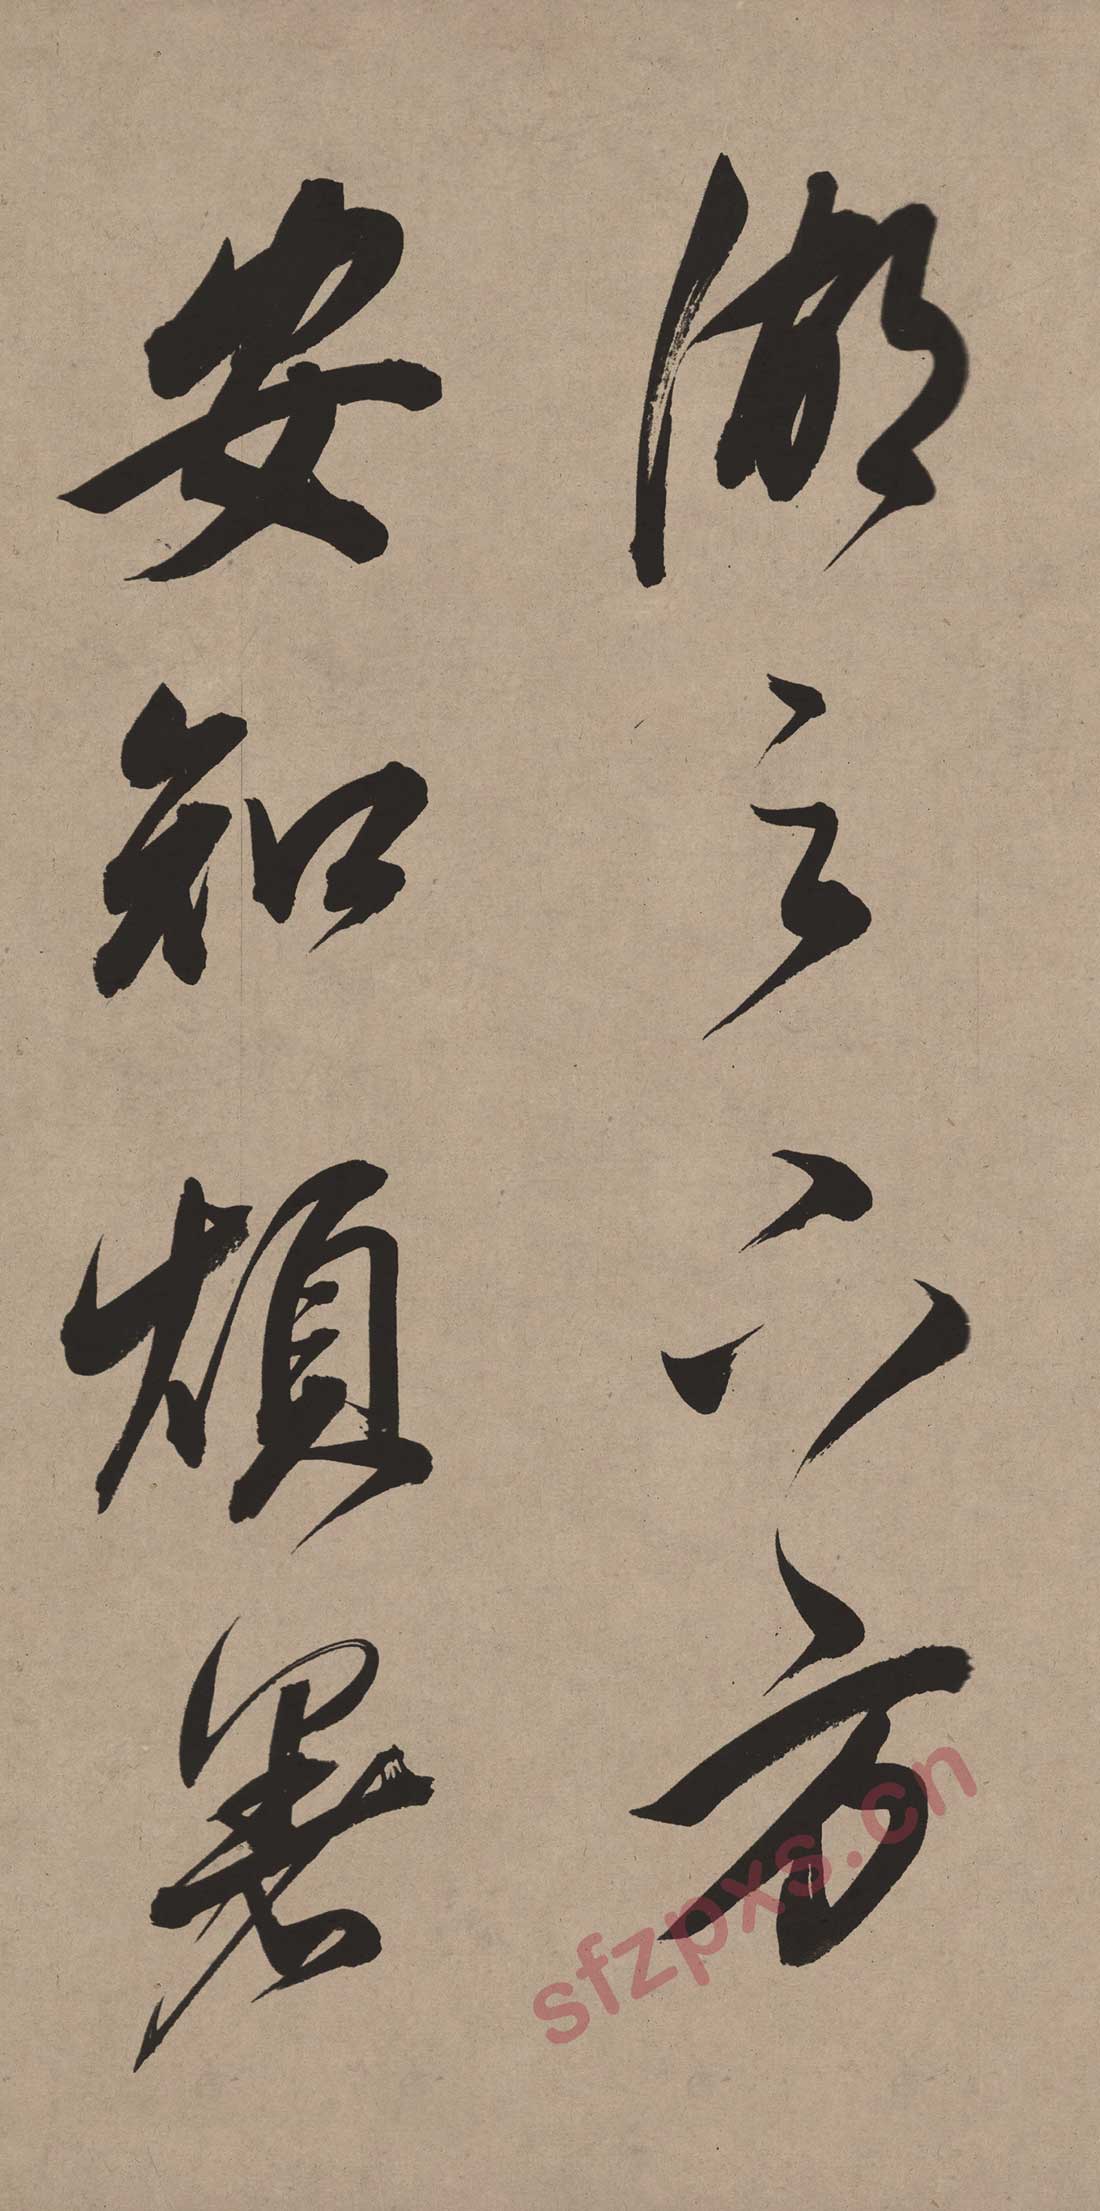 湖之六方
安知煩暑
sfzpxs.cn